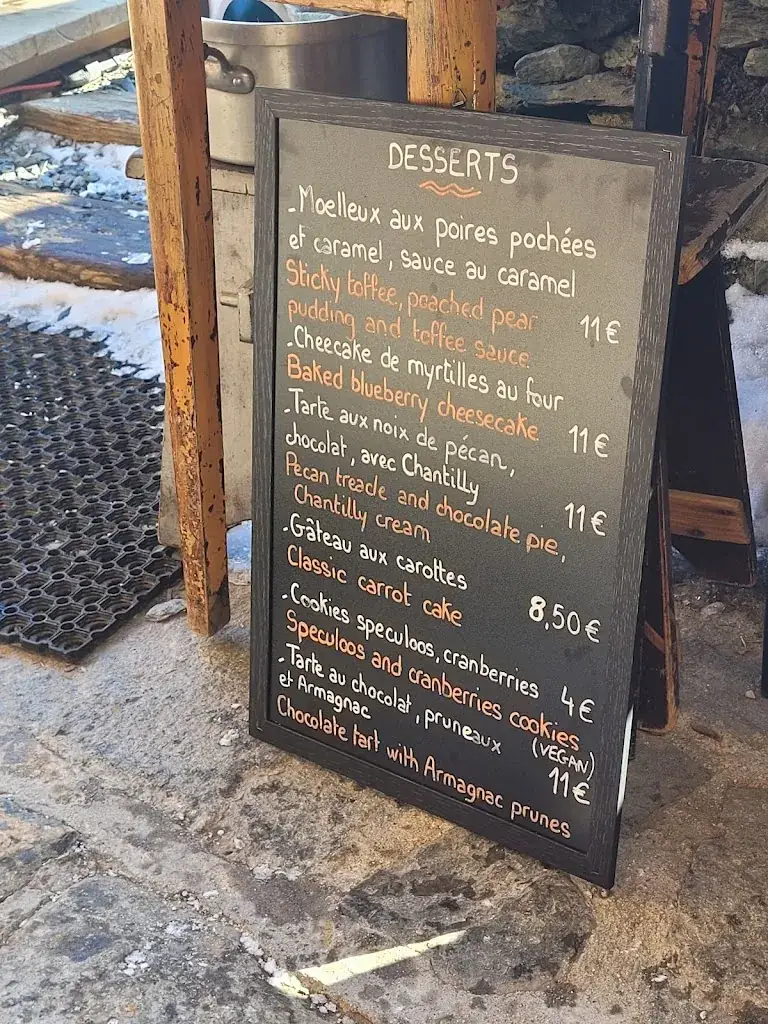 DESSERTS
- Moelleux aux poires pochées
et caramel, sauce au caramel
Sticky toffee, poached pear
pudding and toffee sauce 11€
- Cheecake de myrtilles au four
Baked blueberry cheesecake 11€
- Tarte aux noix de pécan,
chocolat, avec Chantilly
Pecan treacle and chocolate pie, 11€
Chantilly cream
- Gâteau aux carottes
Classic carrot cake 8,50€
- Cookies speculoos, cranberries
Speculoos and cranberries cookies 4€
- Tarte au chocolat, pruneaux (VEGAN)
et Armagnac 11€
Chocolate tart with Armagnac prunes